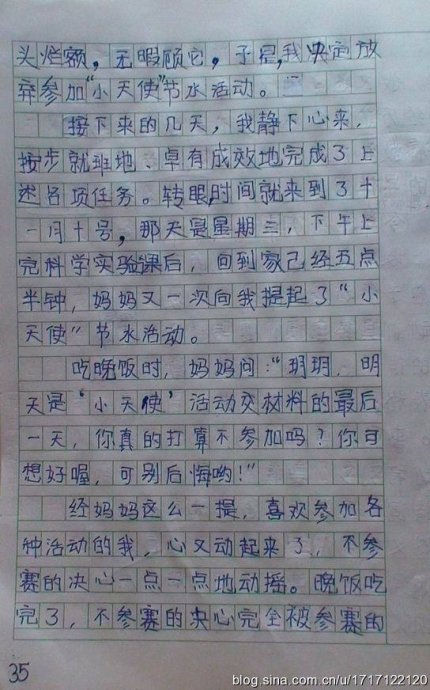 头烂额，无暇顾它，于是，我决定放
弃参加“小天使”节水活动。
接下来的几天，我静下心来，
按步就班地、卓有成效地完成了上
述各项任务。转眼，时间就来到了十
一月十号，那天是星期三，下午上
完科学实验课后，回到家已经五点
半钟，妈妈又一次向我提起了“小
天使”节水活动。
吃晚饭时，妈妈问：“玥玥，明
天是‘小天使’活动交材料的最后
一天，你真的打算不参加吗？你可
想好喔，可别后悔哟！”
经妈妈这么一提，喜欢参加各
种活动的我，心又动起来了，不参
赛的决心一点一点地动摇。晚饭吃
完了，不参赛的决心完全被参赛的
35
blog.sina.com.cn/u/1717122120